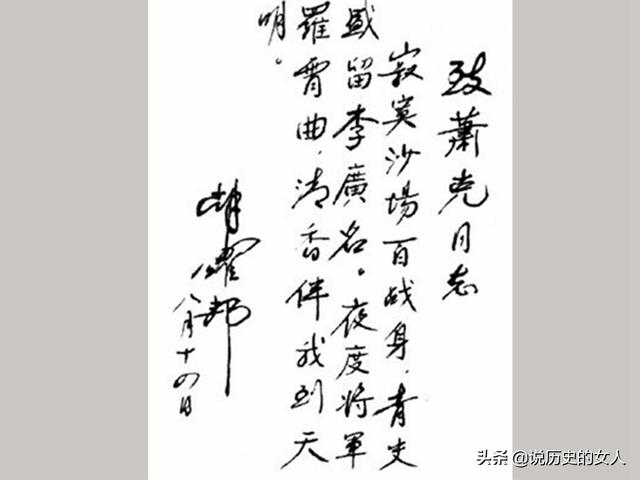 致蕭克同志
寂寞沙場百战身，青史
盛留李廣名。夜度将軍
羅霄曲，清香伴我到天
明。
胡耀邦
八月十四日
头条 @说历史的女人